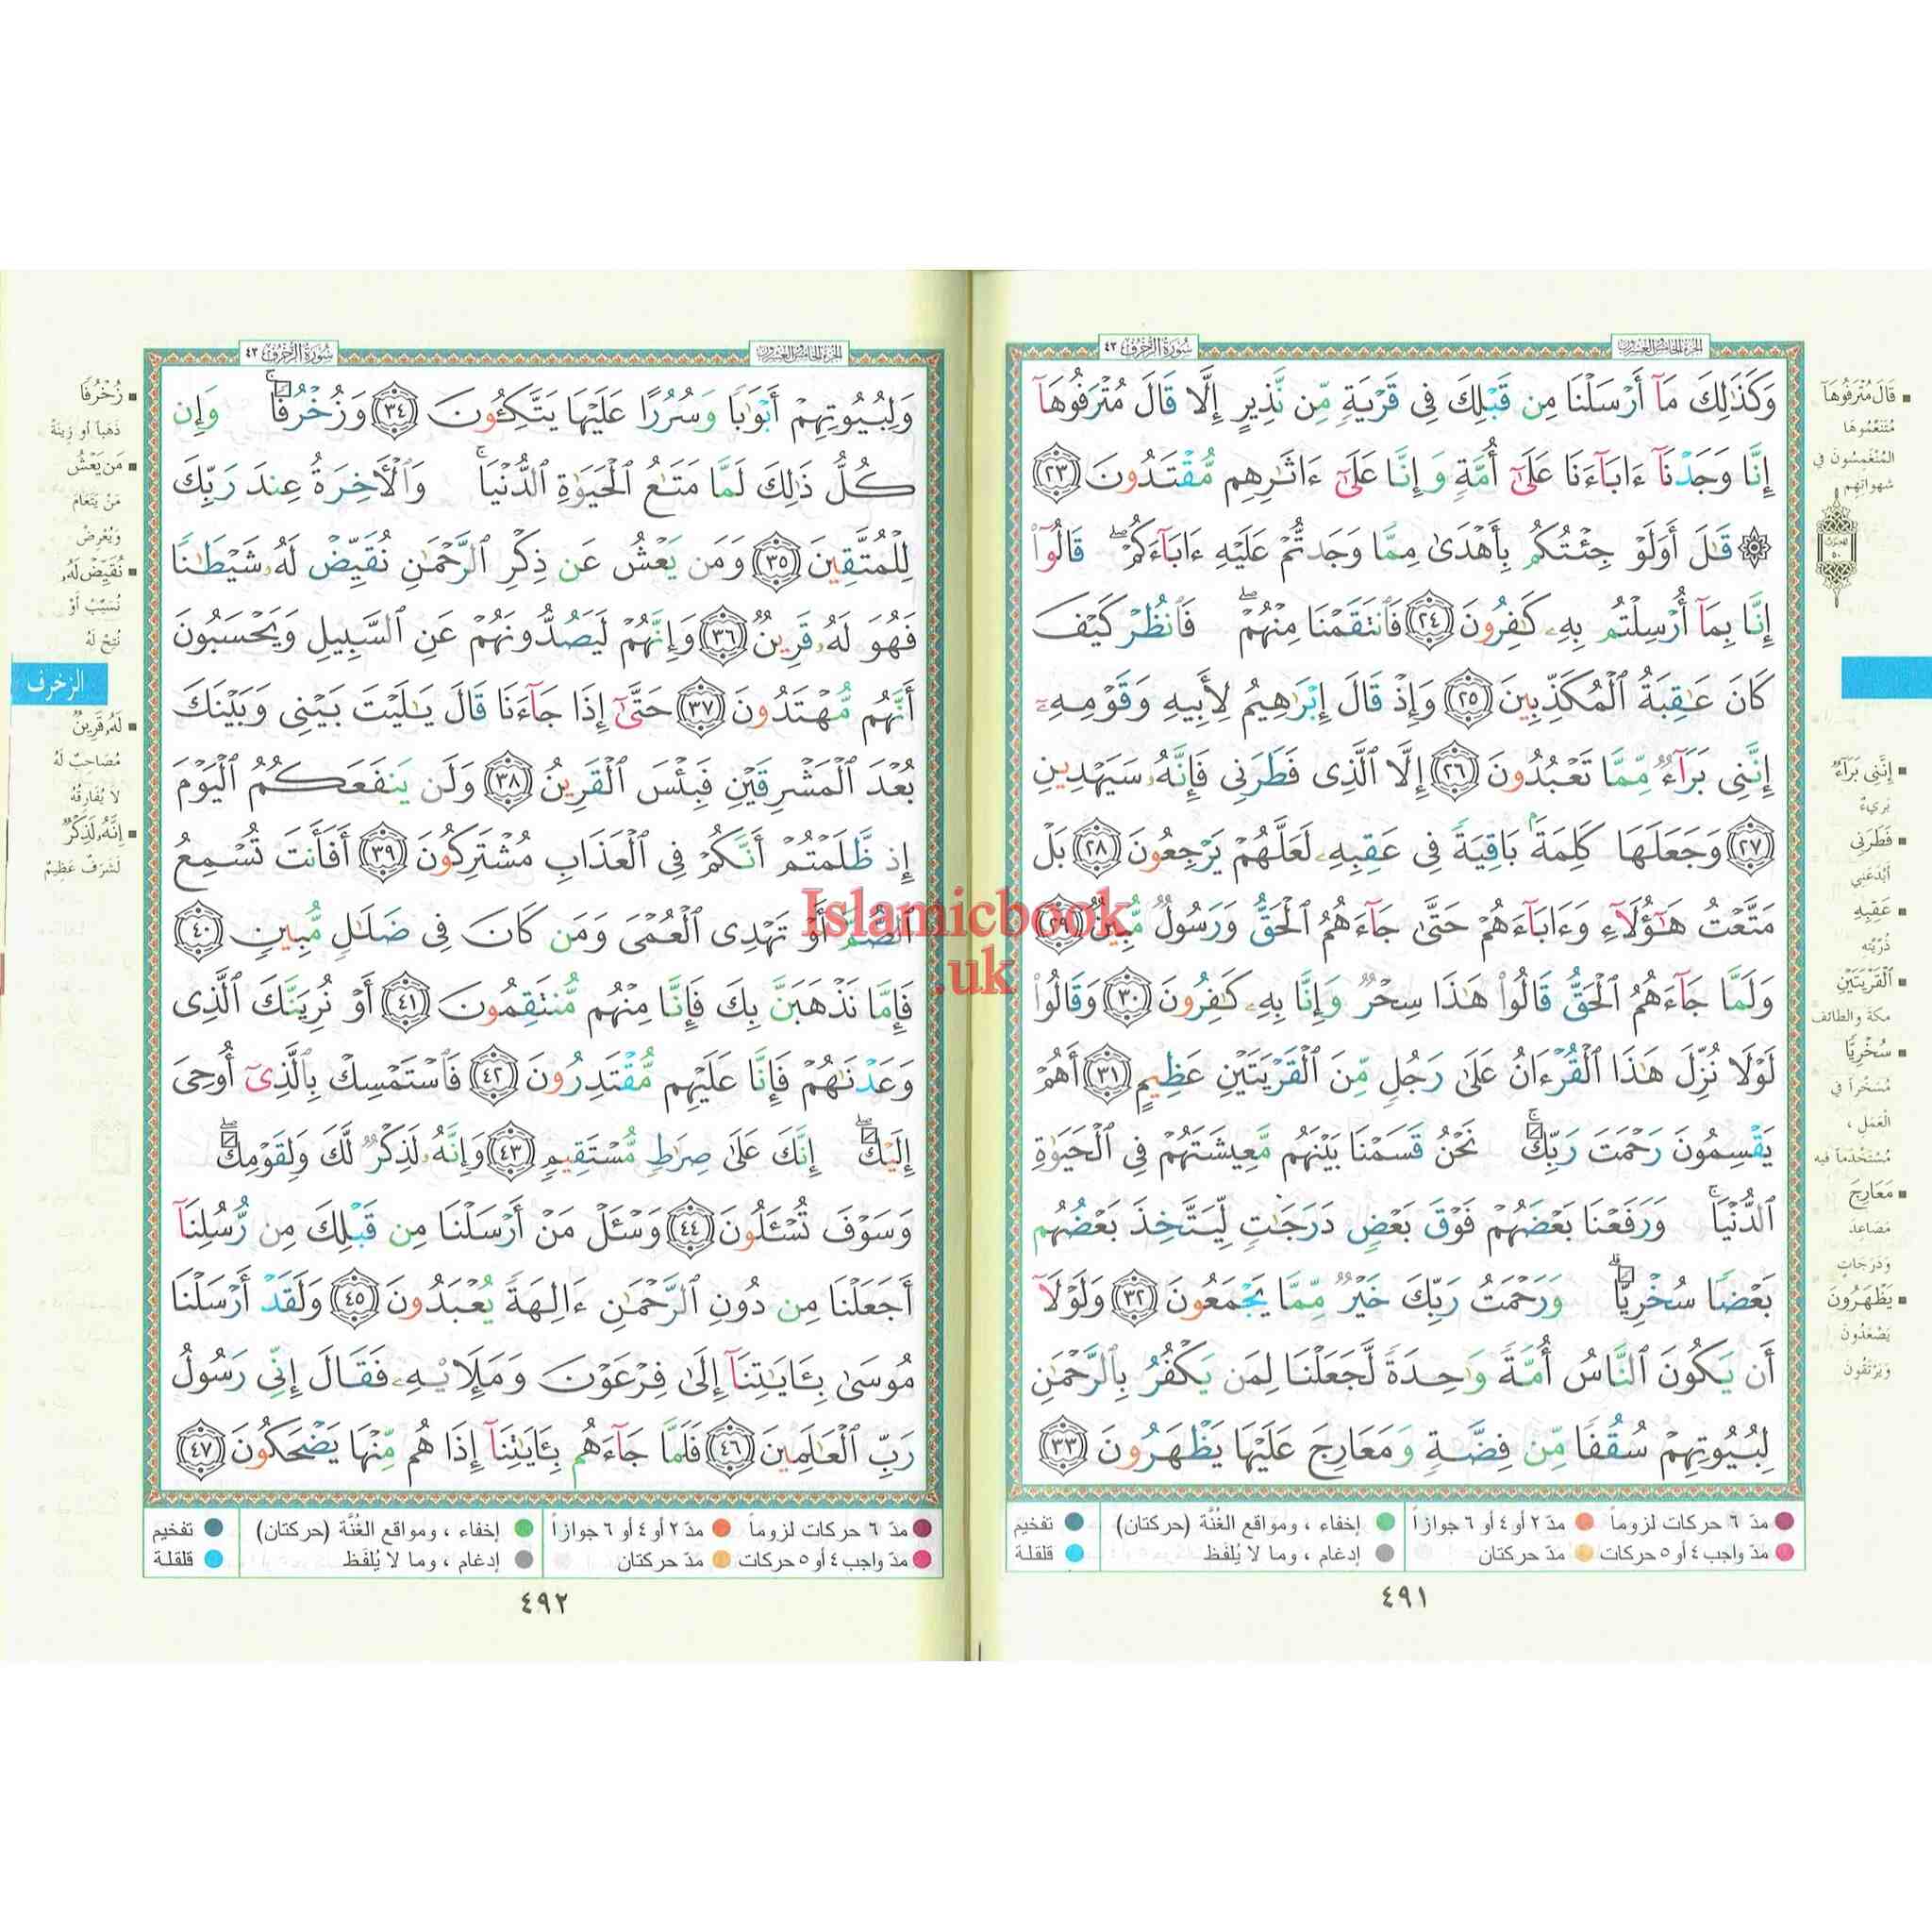 الجزء الخامس والعشرون
سورة الزخرف ٤٣
وَكَذَٰلِكَ مَآ أَرۡسَلۡنَا مِن قَبۡلِكَ فِي قَرۡيَةٖ مِّن نَّذِيرٍ إِلَّا قَالَ مُتۡرَفُوهَآ
إِنَّا وَجَدۡنَآ ءَابَآءَنَا عَلَىٰٓ أُمَّةٖ وَإِنَّا عَلَىٰٓ ءَاثَٰرِهِم مُّقۡتَدُونَ ٢٣
۞ قَٰلَ أَوَلَوۡ جِئۡتُكُم بِأَهۡدَىٰ مِمَّا وَجَدتُّمۡ عَلَيۡهِ ءَابَآءَكُمۡۖ قَالُوٓاْ
إِنَّا بِمَآ أُرۡسِلۡتُم بِهِۦ كَٰفِرُونَ ٢٤ فَٱنتَقَمۡنَا مِنۡهُمۡۖ فَٱنظُرۡ كَيۡفَ
كَانَ عَٰقِبَةُ ٱلۡمُكَذِّبِينَ ٢٥ وَإِذۡ قَالَ إِبۡرَٰهِيمُ لِأَبِيهِ وَقَوۡمِهِۦٓ
إِنَّنِي بَرَآءٞ مِّمَّا تَعۡبُدُونَ ٢٦ إِلَّا ٱلَّذِي فَطَرَنِي فَإِنَّهُۥ سَيَهۡدِينِ
٢٧ وَجَعَلَهَا كَلِمَةَۢ بَاقِيَةٗ فِي عَقِبِهِۦ لَعَلَّهُمۡ يَرۡجِعُونَ ٢٨ بَلۡ
مَتَّعۡتُ هَٰٓؤُلَآءِ وَءَابَآءَهُمۡ حَتَّىٰ جَآءَهُمُ ٱلۡحَقُّ وَرَسُولٞ مُّبِينٞ ٢٩
وَلَمَّا جَآءَهُمُ ٱلۡحَقُّ قَالُواْ هَٰذَا سِحۡرٞ وَإِنَّا بِهِۦ كَٰفِرُونَ ٣٠ وَقَالُواْ
لَوۡلَا نُزِّلَ هَٰذَا ٱلۡقُرۡءَانُ عَلَىٰ رَجُلٖ مِّنَ ٱلۡقَرۡيَتَيۡنِ عَظِيمٍ ٣١ أَهُمۡ
يَقۡسِمُونَ رَحۡمَتَ رَبِّكَۚ نَحۡنُ قَسَمۡنَا بَيۡنَهُم مَّعِيشَتَهُمۡ فِي ٱلۡحَيَوٰةِ
ٱلدُّنۡيَاۚ وَرَفَعۡنَا بَعۡضَهُمۡ فَوۡقَ بَعۡضٖ دَرَجَٰتٖ لِّيَتَّخِذَ بَعۡضُهُم
بَعۡضٗا سُخۡرِيّٗاۗ وَرَحۡمَتُ رَبِّكَ خَيۡرٞ مِّمَّا يَجۡمَعُونَ ٣٢ وَلَوۡلَآ
أَن يَكُونَ ٱلنَّاسُ أُمَّةٗ وَٰحِدَةٗ لَّجَعَلۡنَا لِمَن يَكۡفُرُ بِٱلرَّحۡمَٰنِ
لِبُيُوتِهِمۡ سُقُفٗا مِّن فِضَّةٖ وَمَعَارِجَ عَلَيۡهَا يَظۡهَرُونَ ٣٣
قَالَ مُتۡرَفُوهَآ
مُتَنَعِّمُوهَا
المُنْغَمِسُونَ في
شهواتِهِم
إِنَّنِي بَرَآءٞ
بَريءٌ
فَطَرَنِي
أَبْدَعَنِي
عَقِبِهِ
ذُرِّيَّتِهِ
ٱلۡقَرۡيَتَيۡنِ
مكةَ والطائف
سُخۡرِيّٗا
مُسَخَّراً في
الْعَمَلِ،
مُسْتَخْدَماً فيه
مَعَارِجَ
مَصَاعدَ
وَدَرَجَاتٍ
يَظۡهَرُونَ
يَصْعَدُونَ
وَيَرْتَقُونَ
مدّ ٦ حركات لزوماً مدّ ٢ أو ٤ أو ٦ جوازاً إخفاء ، ومواقع الغُنَّة (حركتان) تفخيم
مدّ واجب ٤ أو ٥ حركات مدّ حركتان إدغام ، وما لا يُلفَظ قلقلة
٤٩١
الجزء الخامس والعشرون
سورة الزخرف ٤٣
وَلِبُيُوتِهِمۡ أَبۡوَٰبٗا وَسُرُرًا عَلَيۡهَا يَتَّكِـُٔونَ ٣٤ وَزُخۡرُفٗاۚ وَإِن
كُلُّ ذَٰلِكَ لَمَّا مَتَٰعُ ٱلۡحَيَوٰةِ ٱلدُّنۡيَاۚ وَٱلۡأٓخِرَةُ عِندَ رَبِّكَ
لِلۡمُتَّقِينَ ٣٥ وَمَن يَعۡشُ عَن ذِكۡرِ ٱلرَّحۡمَٰنِ نُقَيِّضۡ لَهُۥ شَيۡطَٰنٗا
فَهُوَ لَهُۥ قَرِينٞ ٣٦ وَإِنَّهُمۡ لَيَصُدُّونَهُمۡ عَنِ ٱلسَّبِيلِ وَيَحۡسَبُونَ
أَنَّهُم مُّهۡتَدُونَ ٣٧ حَتَّىٰٓ إِذَا جَآءَنَا قَالَ يَٰلَيۡتَ بَيۡنِي وَبَيۡنَكَ
بُعۡدَ ٱلۡمَشۡرِقَيۡنِ فَبِئۡسَ ٱلۡقَرِينُ ٣٨ وَلَن يَنفَعَكُمُ ٱلۡيَوۡمَ
إِذ ظَّلَمۡتُمۡ أَنَّكُمۡ فِي ٱلۡعَذَابِ مُشۡتَرِكُونَ ٣٩ أَفَأَنتَ تُسۡمِعُ
ٱلصُّمَّ أَوۡ تَهۡدِي ٱلۡعُمۡيَ وَمَن كَانَ فِي ضَلَٰلٖ مُّبِينٖ ٤٠
فَإِمَّا نَذۡهَبَنَّ بِكَ فَإِنَّا مِنۡهُم مُّنتَقِمُونَ ٤١ أَوۡ نُرِيَنَّكَ ٱلَّذِي
وَعَدۡنَٰهُمۡ فَإِنَّا عَلَيۡهِم مُّقۡتَدِرُونَ ٤٢ فَٱسۡتَمۡسِكۡ بِٱلَّذِيٓ أُوحِيَ
إِلَيۡكَۖ إِنَّكَ عَلَىٰ صِرَٰطٖ مُّسۡتَقِيمٖ ٤٣ وَإِنَّهُۥ لَذِكۡرٞ لَّكَ وَلِقَوۡمِكَۖ
وَسَوۡفَ تُسۡـَٔلُونَ ٤٤ وَسۡـَٔلۡ مَنۡ أَرۡسَلۡنَا مِن قَبۡلِكَ مِن رُّسُلِنَآ
أَجَعَلۡنَا مِن دُونِ ٱلرَّحۡمَٰنِ ءَالِهَةٗ يُعۡبَدُونَ ٤٥ وَلَقَدۡ أَرۡسَلۡنَا
مُوسَىٰ بِـَٔايَٰتِنَآ إِلَىٰ فِرۡعَوۡنَ وَمَلَإِيْهِۦ فَقَالَ إِنِّي رَسُولُ
رَبِّ ٱلۡعَٰلَمِينَ ٤٦ فَلَمَّا جَآءَهُم بِـَٔايَٰتِنَآ إِذَا هُم مِّنۡهَا يَضۡحَكُونَ ٤٧
زُخۡرُفٗا
ذَهَباً أو زِينَةً
مَن يَعۡشُ
مَنْ يَتَعَامَ
وَيُعْرِضْ
نُقَيِّضۡ لَهُۥ
نُسَبِّبْ أَوْ
نُتِحْ لَهُ
الزخرف
لَهُۥ قَرِينٞ
مُصَاحِبٌ لَهُ
لاَ يُفَارِقُهُ
إِنَّهُۥ لَذِكۡرٞ
لَشَرَفٌ عَظِيمٌ
مدّ ٦ حركات لزوماً مدّ ٢ أو ٤ أو ٦ جوازاً إخفاء ، ومواقع الغُنَّة (حركتان) تفخيم
مدّ واجب ٤ أو ٥ حركات مدّ حركتان إدغام ، وما لا يُلفَظ قلقلة
٤٩٢
Islamicbook
.uk